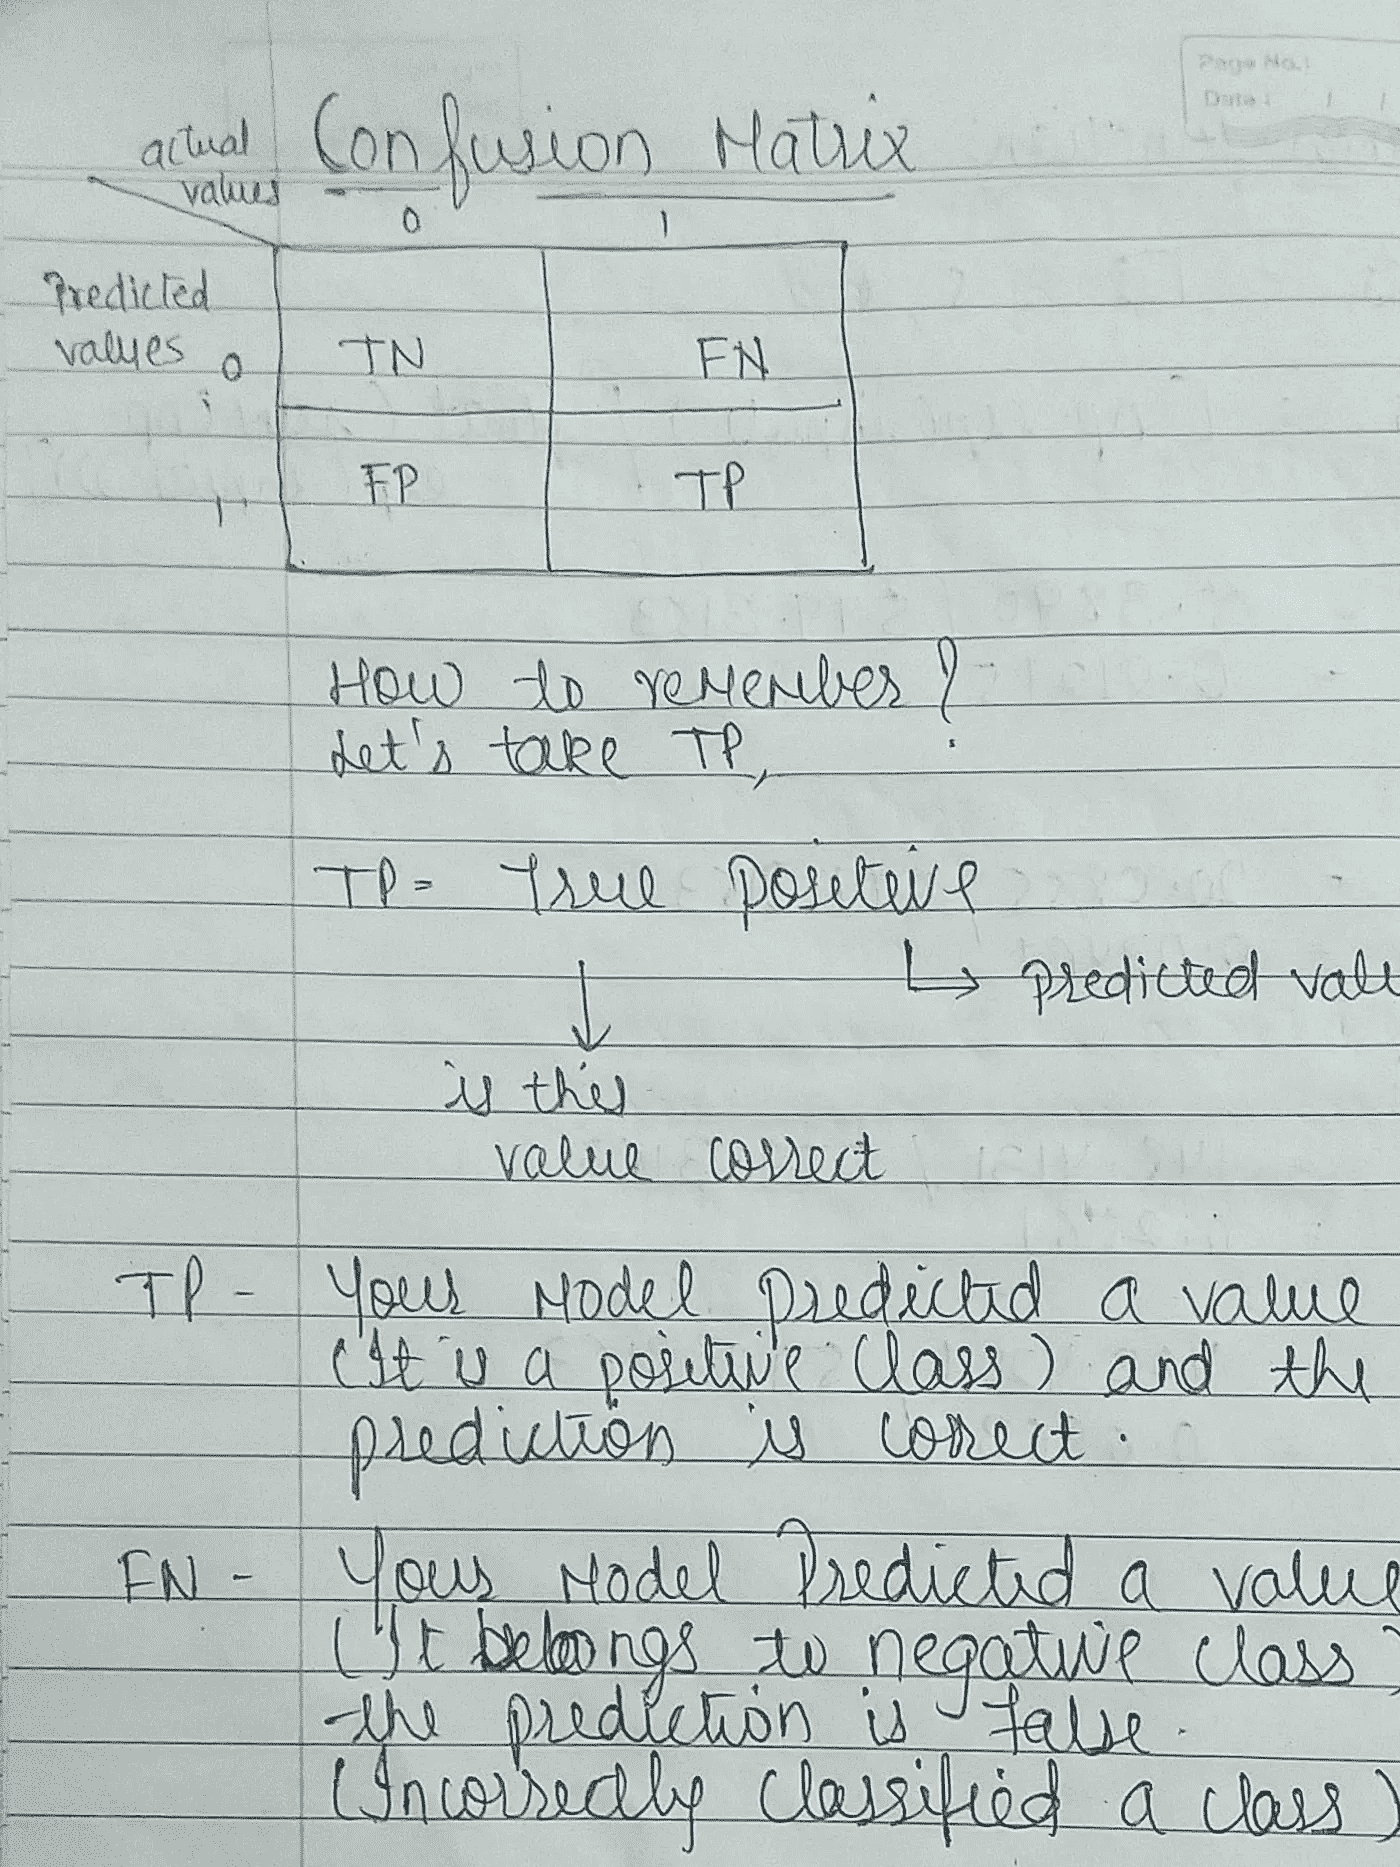 Page No.:
Date: / /
Confusion Matrix
actual
values
0 1
Predicted
values
0 TN FN
1 FP TP
How to remember?
Let's take TP,
TP = True positive
↳ predicted valu
↓
is this
value correct
TP - Your Model predicted a value
(It is a positive class) and the
prediction is correct.
FN - Your Model Predicted a value
(It belongs to negative class)
the prediction is false.
(Incorrectly classified a class)